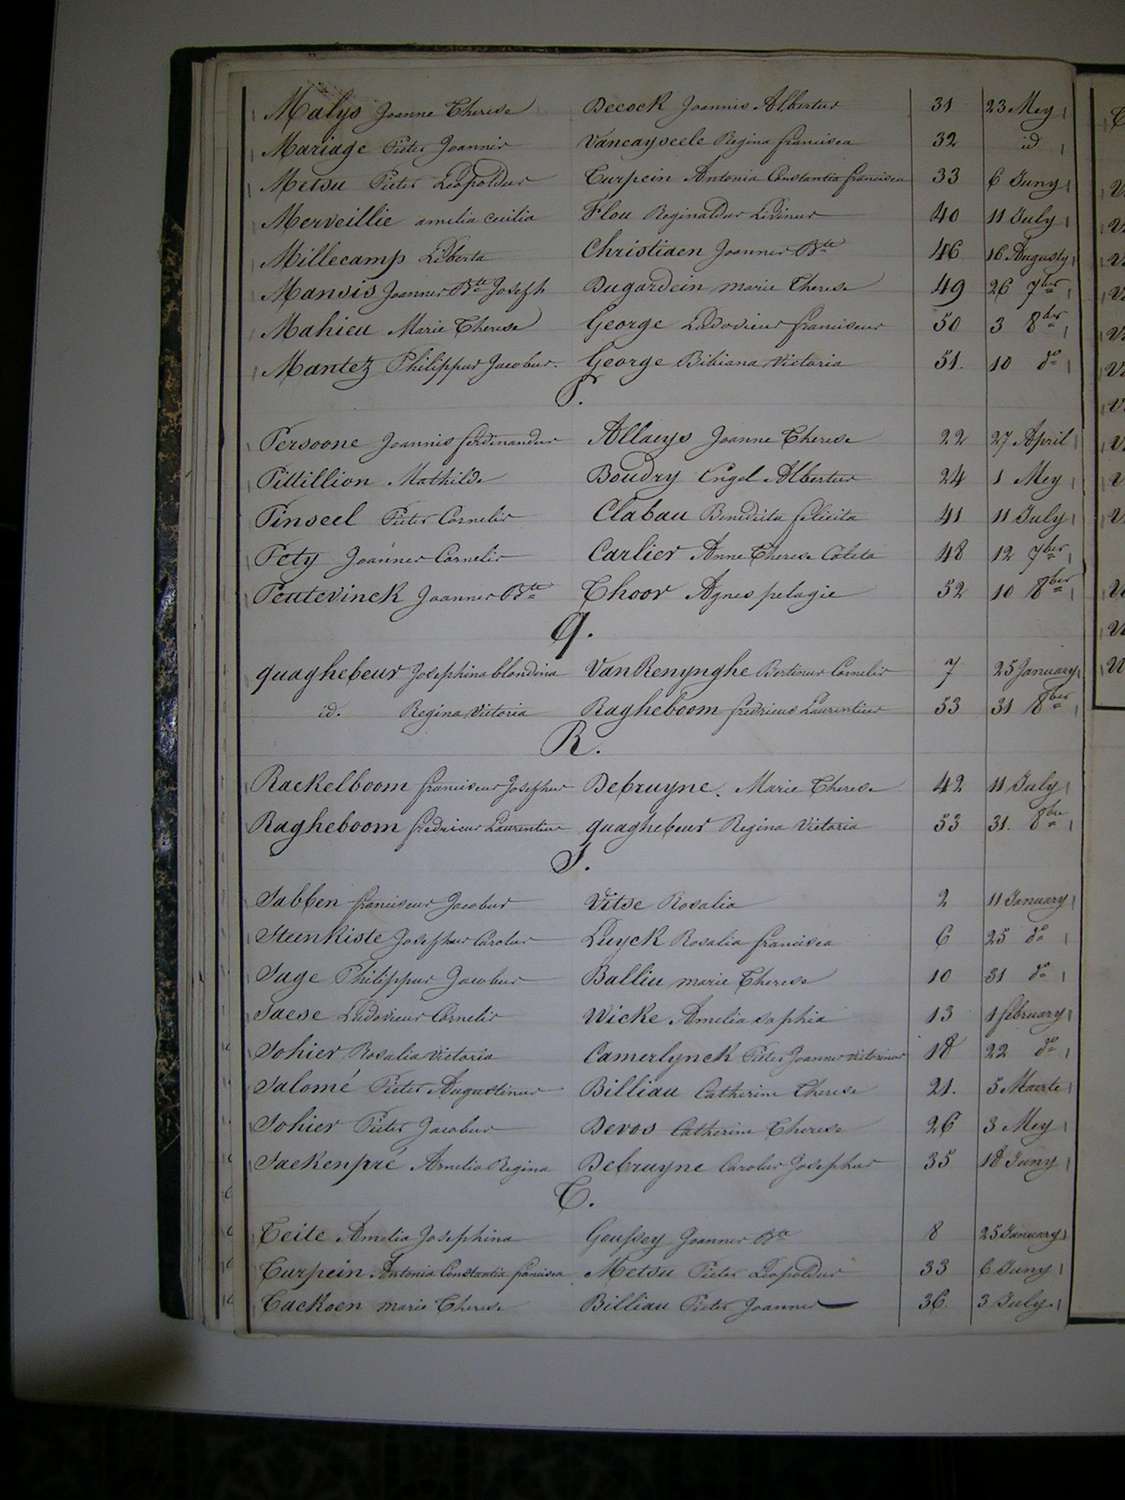 Malys Joanne Therese Decock Joannis Albertus 31 23 Mey
Mariage Pieter Joannes Vancayseele Regina francisca 32 id
Metsu Pieter Leopoldus Turpein Antonia Constantia francisca 33 6 Juny
Merveillie amelia cecilia Flou Reginaldus Livinus 40 11 July
Millecamp Liberta Christiaen Joannes Bte 46 16 Augusty
Mansis Joannes Bte Joseph Dugardein marie Therese 49 26 7ber
Mahieu Marie Therese George Ludovicus franciscus 50 3 8ber
Mantez Philippus Jacobus. George Bibiana Victoria 51. 10 do
P.
Persoone Joannis ferdinandus Allaeys Joanne Therese 22 27 April
Pittillion Mathilde Boudry Engel Albertus 24 1 Mey
Pinseel Pieter Cornelis Clabau Benedicta felicita 41 11 July
Pety Joannes Cornelis Carlier Anne Therese Coleta 48 12 7ber
Peutevinck Joannes Bte Thoor Agnes pelagie 52 10 8ber
Q.
quaghebeur Josephina blondina VanRenynghe Bertinus Cornelis 7 25 January
id. Regina Victoria Ragheboom fredricus Laurentius 53 31 8ber
R.
Rackelboom franciscus Josephus Debruyne. Marie Therese 42 11 July
Ragheboom fredricus Laurentius quaghebeur Regina Victoria 53 31. 8bre
S.
Sabben franciscus Jacobus Vitse Rosalia 2 11 January
Steenkiste Josephus Carolus Luyck Rosalia francisca 6 25 do
Sage Philippus Jacobus Balliu marie Therese 10 31 do
Saese Ludovicus Cornelis Wicke Amelia sophia 13 1 february
Sohier Rosalia Victoria Camerlynck Pieter Joannes Victorinus 18 22 do
Salomé Pieter Augustinus Billiau Catherine Therese 21. 5 Maerte
Sohier Pieter Jacobus Devos Catherine Therese 26 3 Mey
Saekenpré Amelia Regina Debruyne Carolus Josephus 35 18 Juny
T.
Teite Amelia Josephina Goussey Joannes Bte 8 25 January
Turpein Antonia Constantia francisca Metsu Pieter Leopoldus 33 6 Juny
Tackoen marie Therese Billiau Pieter Joannes 36 3 July